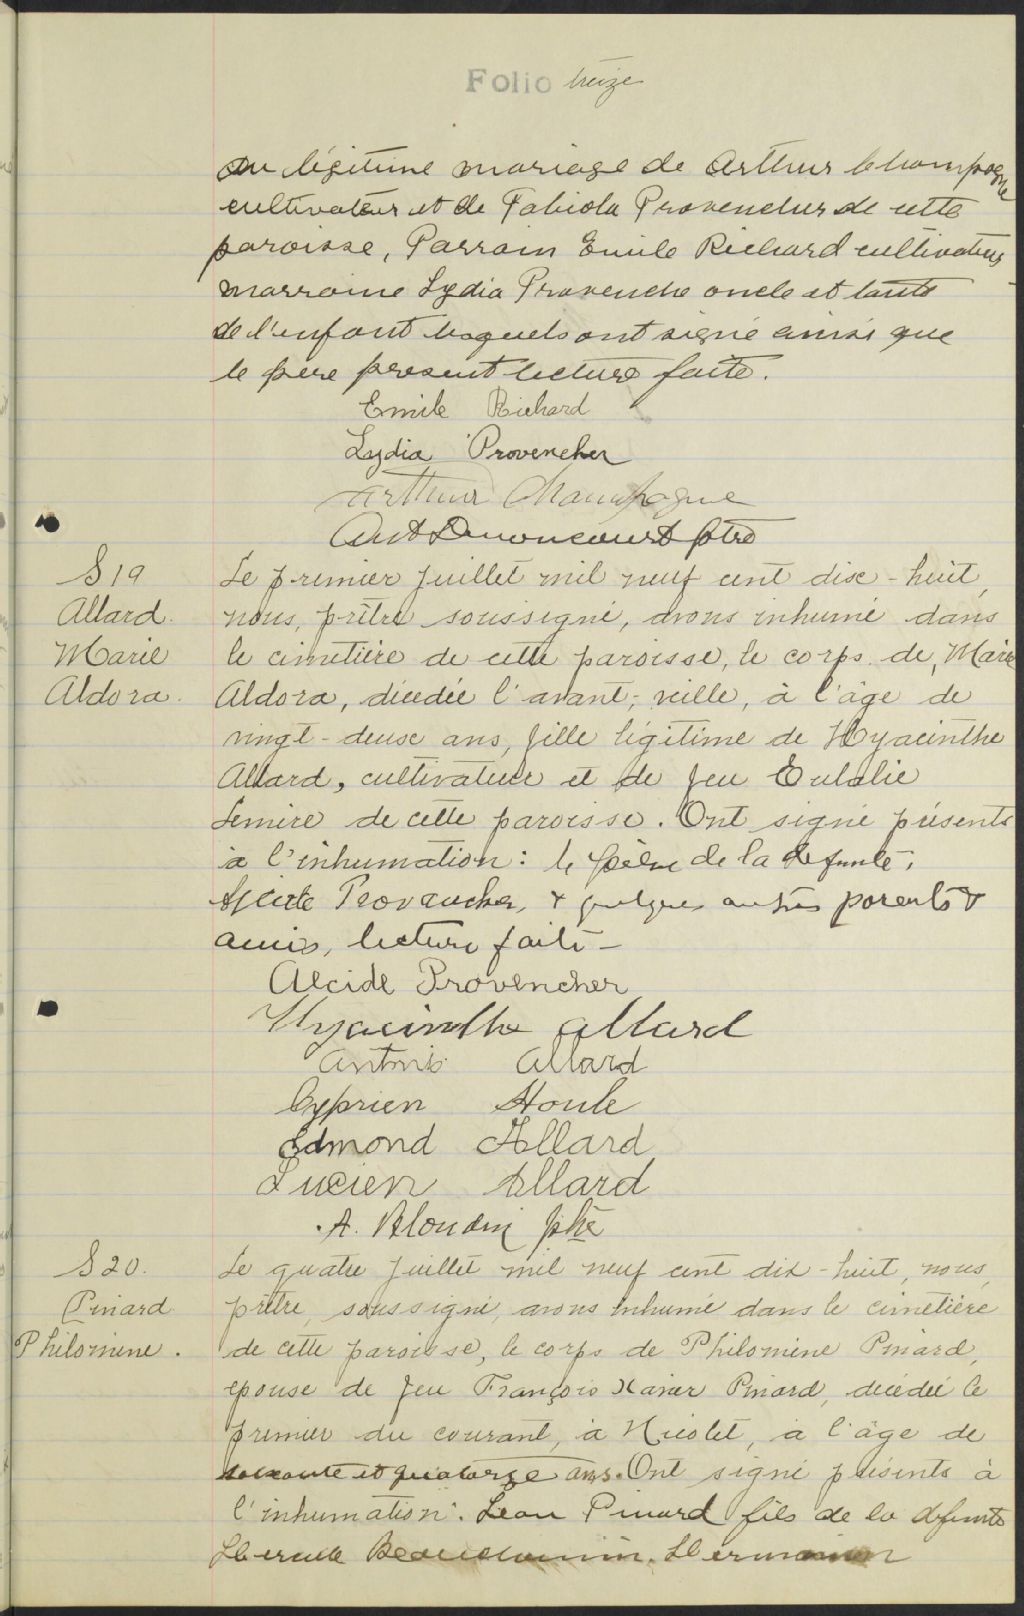 Folio treize
du légitime mariage de Arthur Champagne
cultivateur et de Fabiola Provencher de cette
paroisse, Parrain Emile Richard cultivateur
marraine Lydia Provenche oncle et tante
de l'enfant lesquels ont signé ainsi que
le père present lecture faite.
Emile Richard
Lydia Provencher
Arthur Champagne
Denoncourt ptre
S 19
Allard
Marie
Aldora.
Le premier Juillet mil neuf cent dix-huit,
nous, prêtre soussigné, avons inhumé dans
le cimetière de cette paroisse, le corps de, Marie
Aldora, décédée l'avant-veille, à l'âge de
vingt-deux ans, fille légitime de Hyacinthe
Allard, cultivateur et de feu Eulalie
Lemire de cette paroisse. Ont signé présents
à l'inhumation: le père de la defunte,
Provencher, & quelques autres parents &
amis, lecture faite -
Alcide Provencher
Hyacinthe Allard
Antonio Allard
Cyprien Houle
Edmond Allard
Lucien Allard
A. Blondin ptre
S 20.
Pinard
Philomine.
Le quatre Juillet mil neuf cent dix-huit, nous,
prêtre, soussigné, avons inhumé dans le cimetière
de cette paroisse, le corps de Philomine Pinard,
epouse de feu François Xavier Pinard, décédée le
premier du courant, à Nicolet, à l'âge de
soixante et quatorze ans. Ont signé présents à
l'inhumation: Léon Pinard fils de la defunte
Hercule Beauchemin,